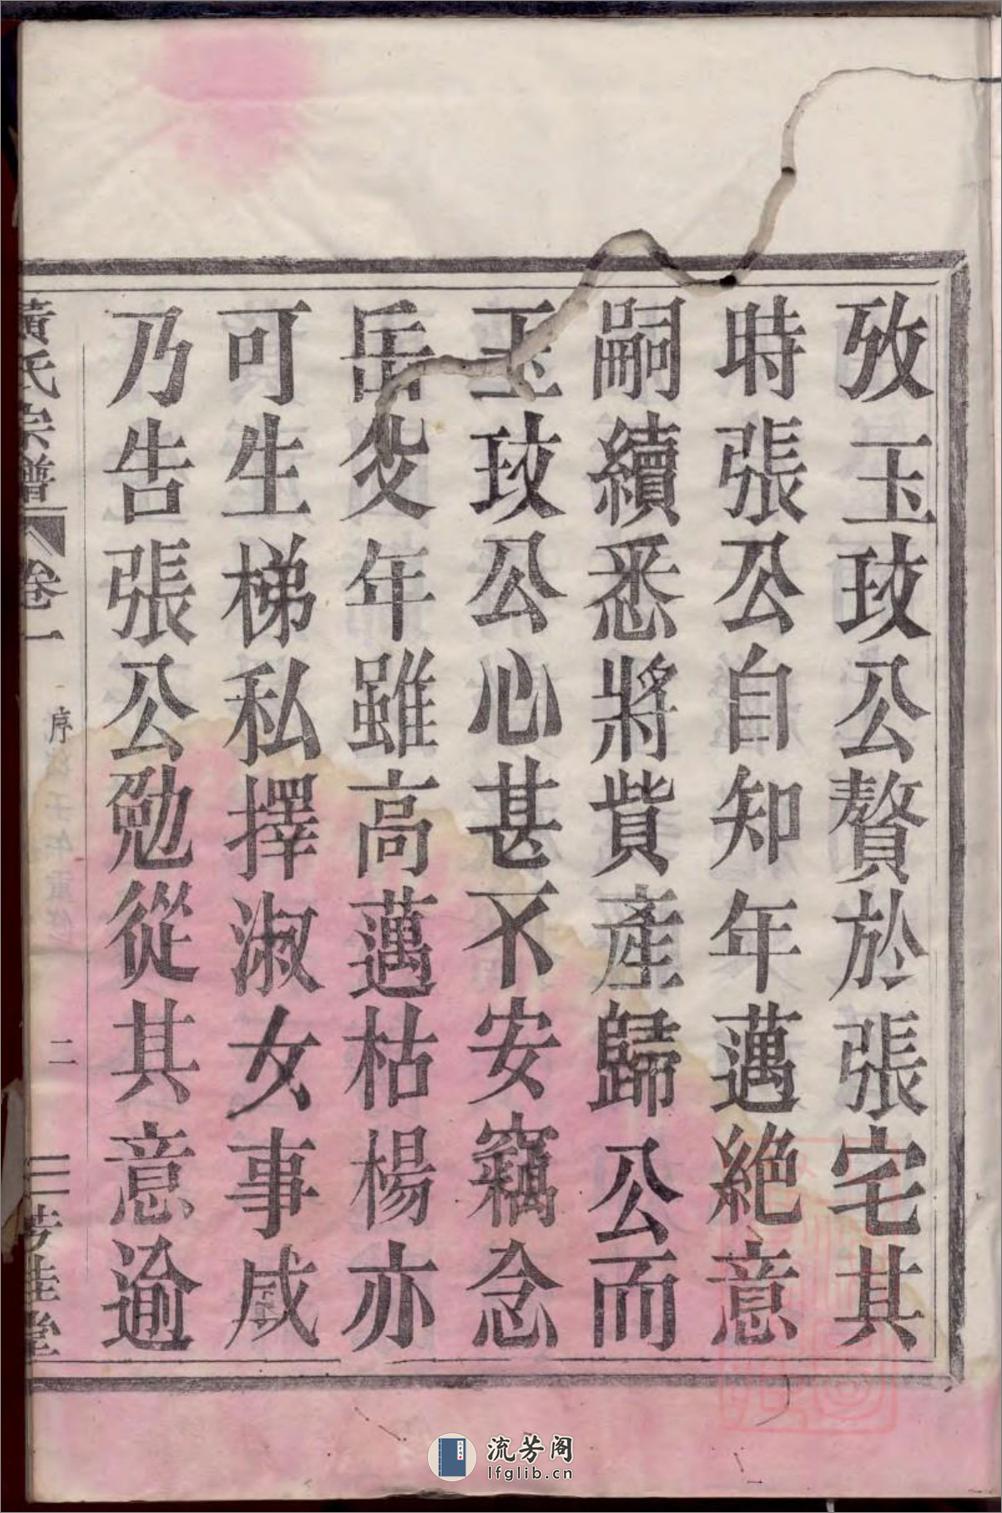 攷玉玟公贅於張宅其
時張公自知年邁絶意
嗣續悉將貲產歸公而
玉玟公心甚不安竊念
岳父年雖高邁枯楊亦
可生梯私擇淑女事成
乃告張公勉從其意逾
黃氏宗譜 卷一 序 二 芳桂堂
流芳阁
lfglib.cn